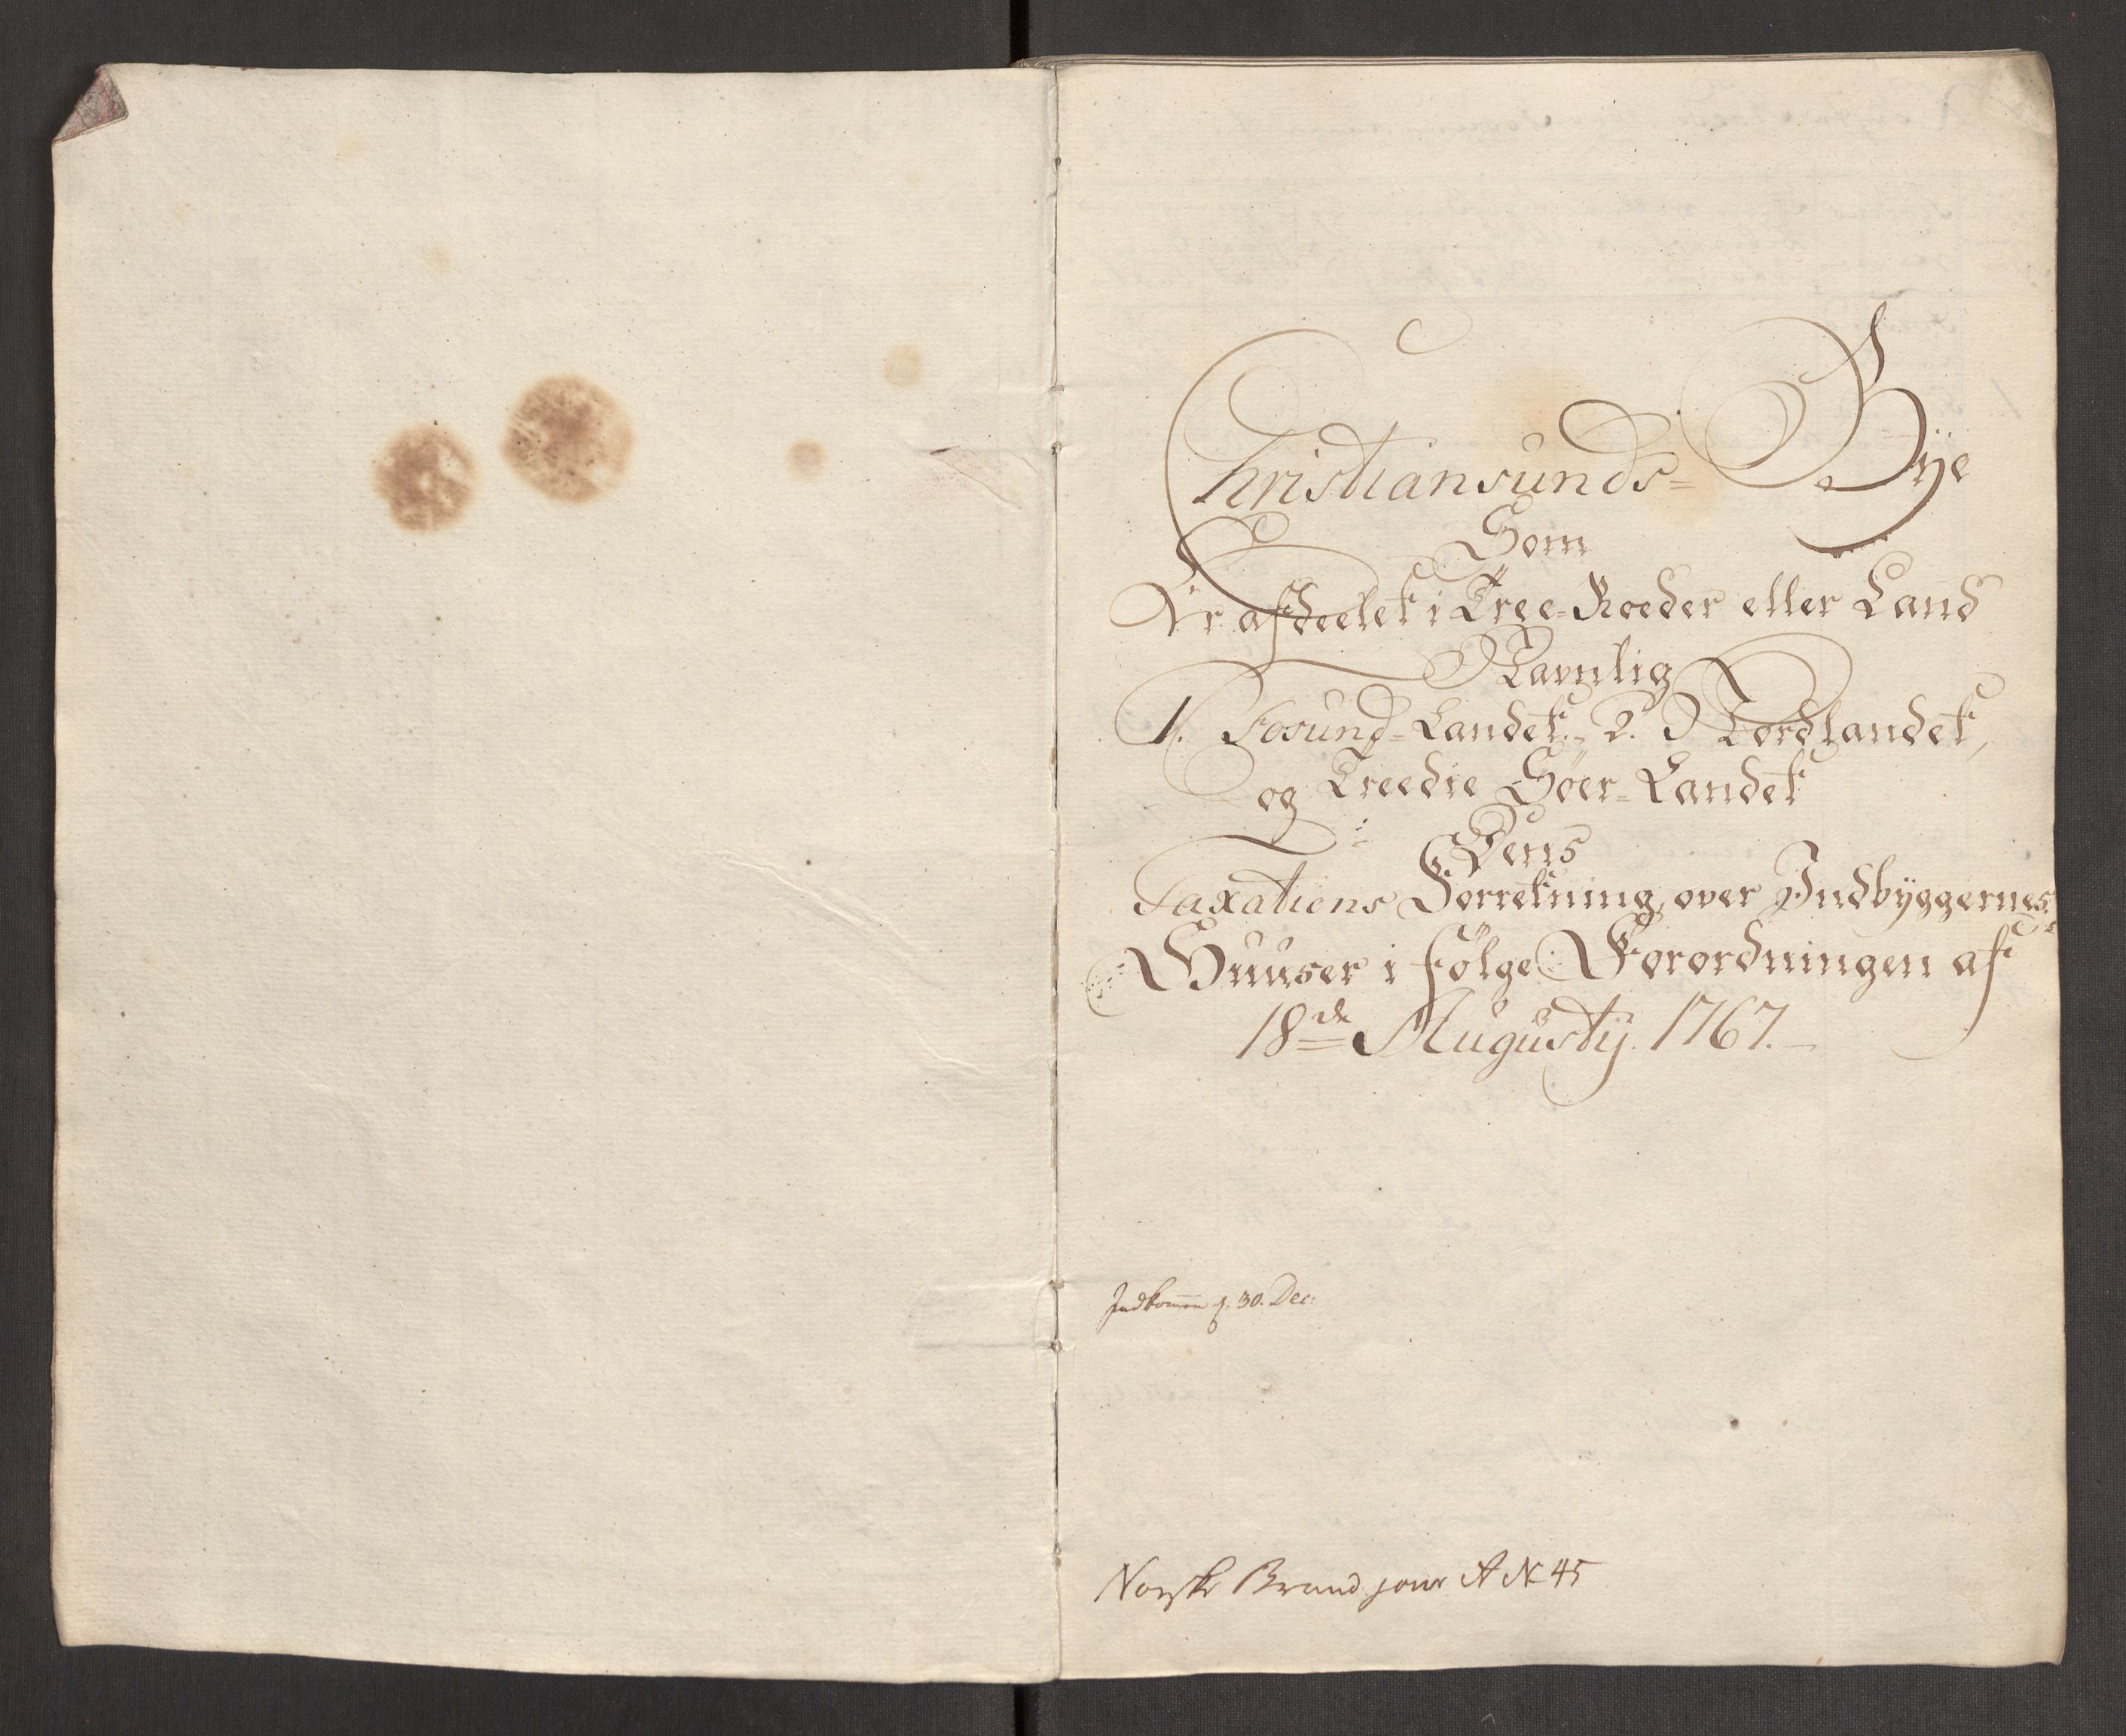 Christiansunds=Bÿe
Som
Er afdeelet i Tree-Roeder eller Land
Navnlig
1. Fosund=Landet. 2. Nordlandet,
og Treedie Söer=Landet
Dens
Taxations Forretning over Indbÿggernes
Huuser i fölge Forordningen af
18de Augustÿ. 1767.
Indkomen d. 30. Dec:
Norske Brand jour A N 45